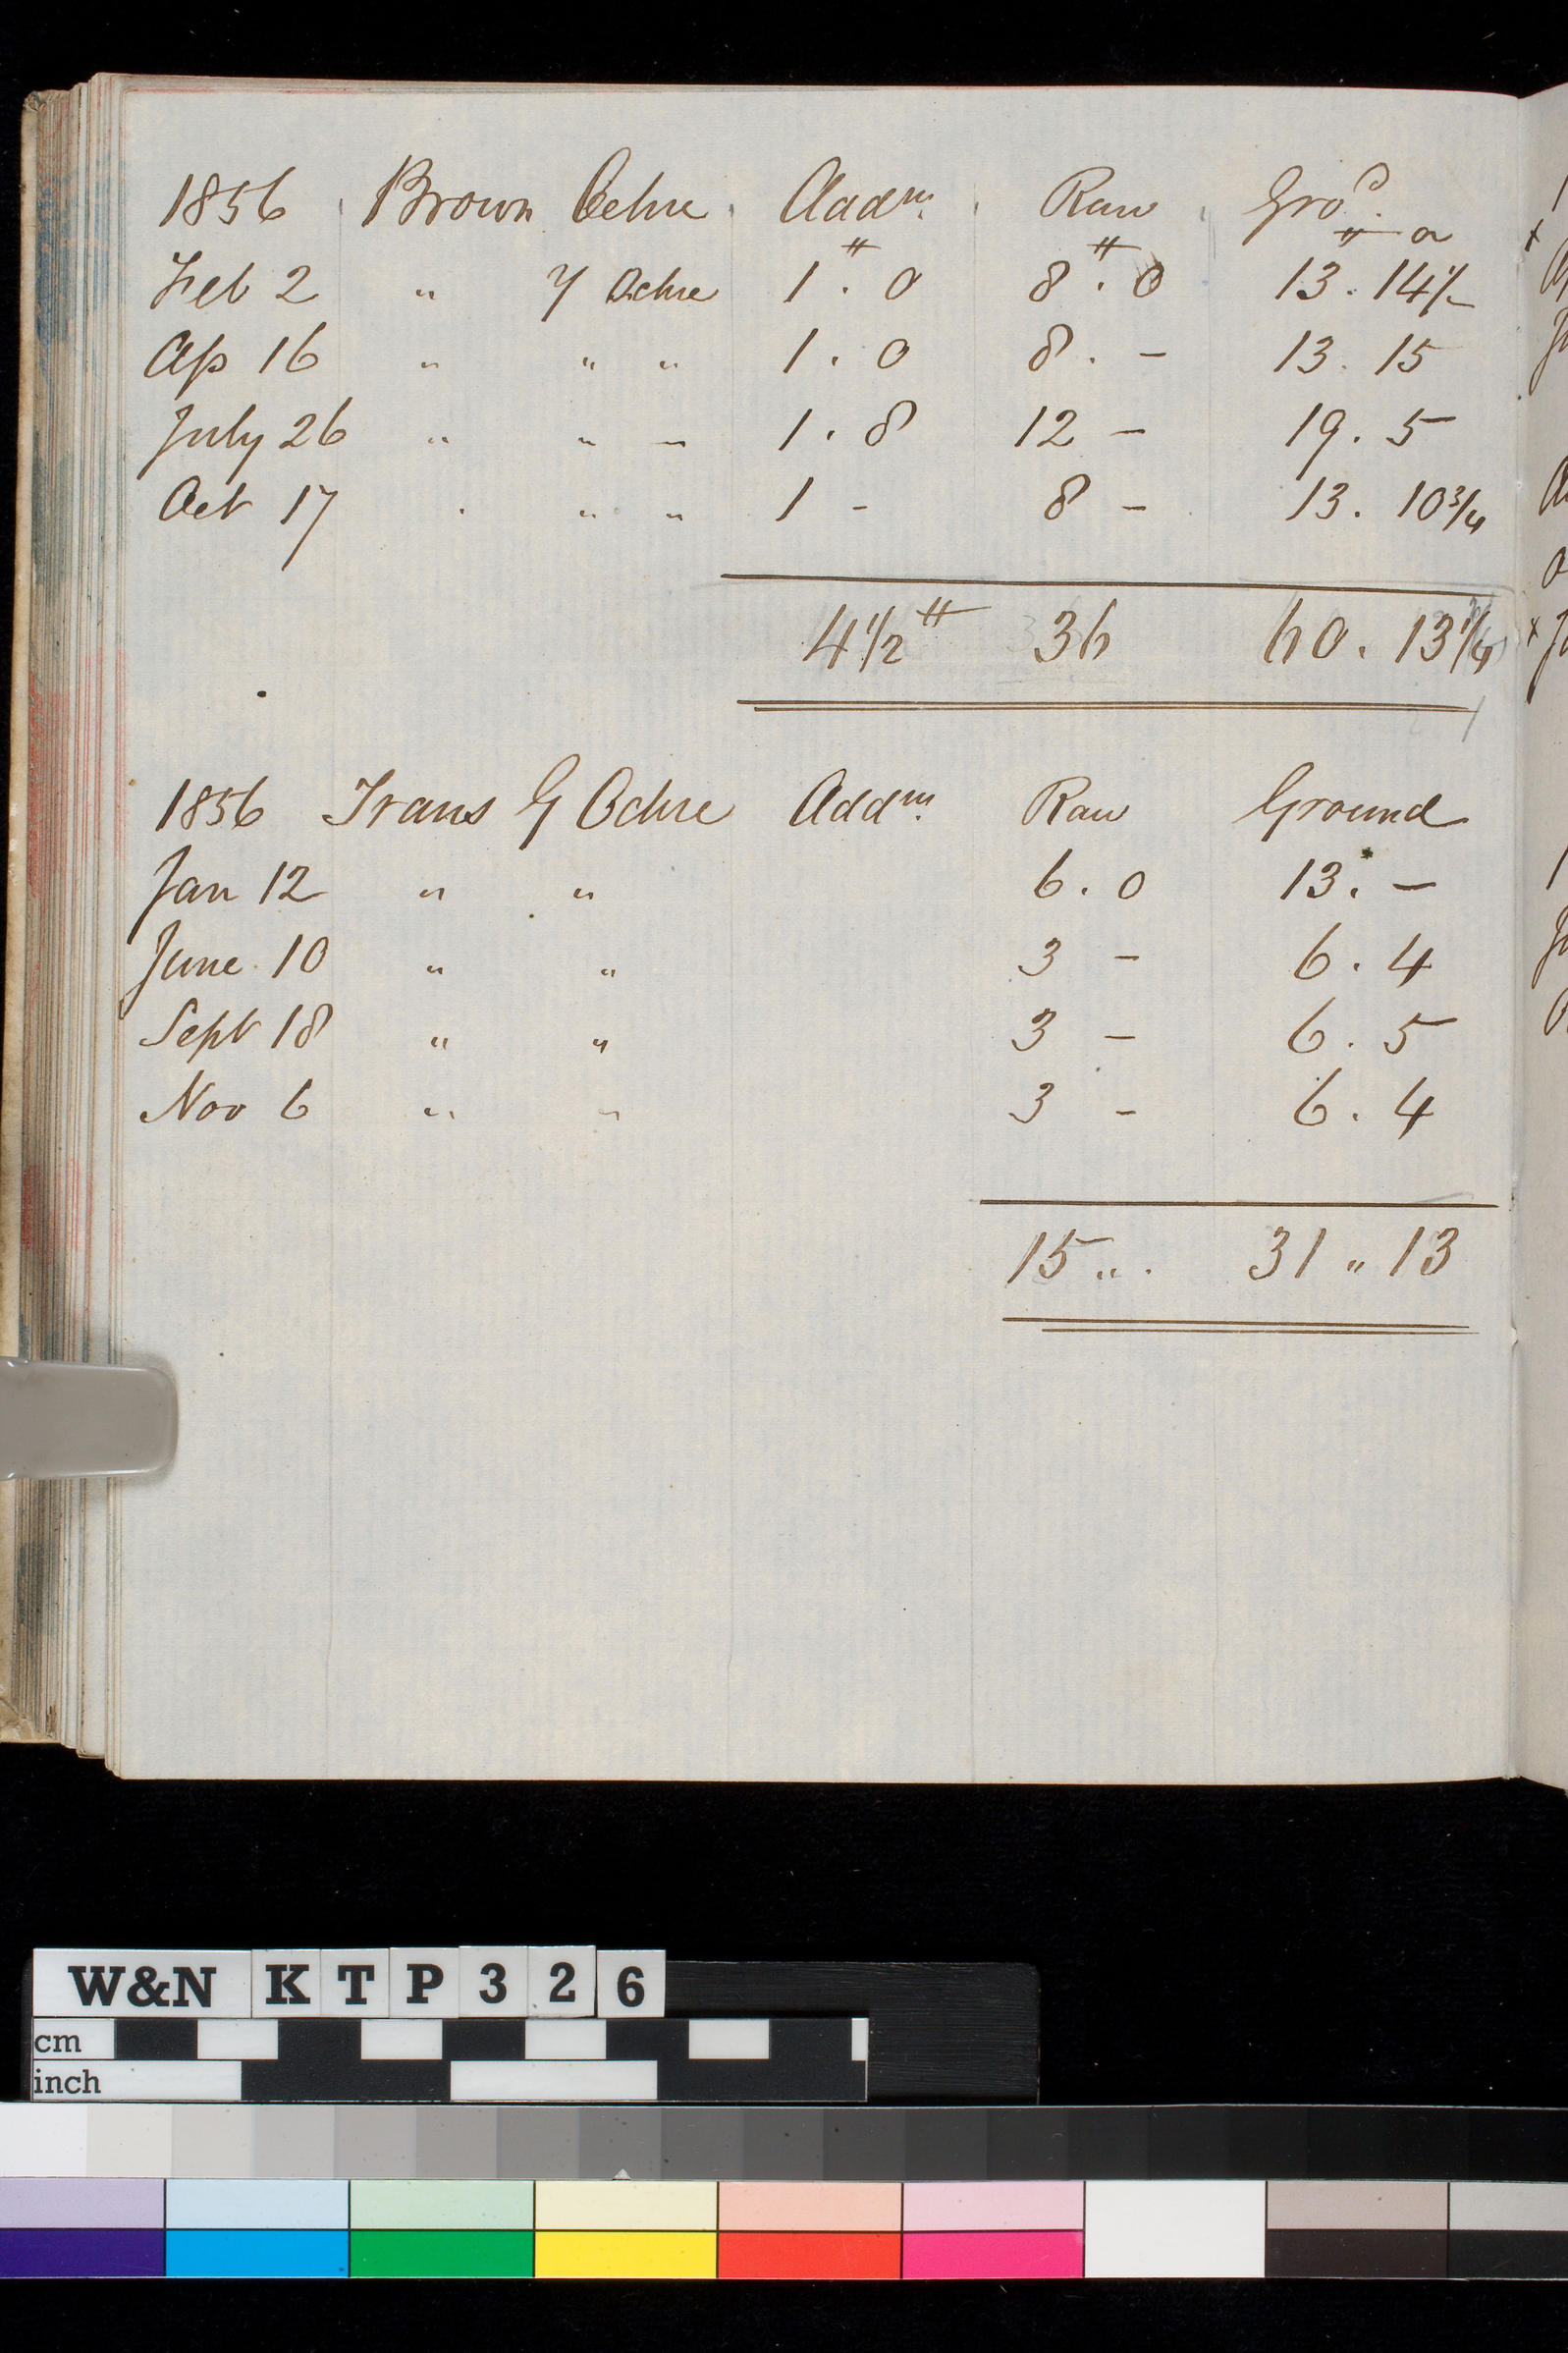 1856 Brown Ochre Addm. Raw Gro^d.
# # # oz
Feb 2 " Y Ochre 1 . 0 8 . 0 13 . 14 1/2
Ap 16 " " " 1 . 0 8 . - 13 . 15
July 26 " " " 1 . 8 12 - 19 . 5
Oct 17 " " " 1 - 8 - 13 . 10 3/4
4 1/2 # 36 60 . 13 1/4
1856 Trans G Ochre Addm. Raw Ground
Jan 12 " " 6 . 0 13 . -
June 10 " " 3 - 6 . 4
Sept 18 " " 3 - 6 . 5
Nov 6 " " 3 - 6 . 4
15 " . 31 " 13
W&N KTP326
cm
inch